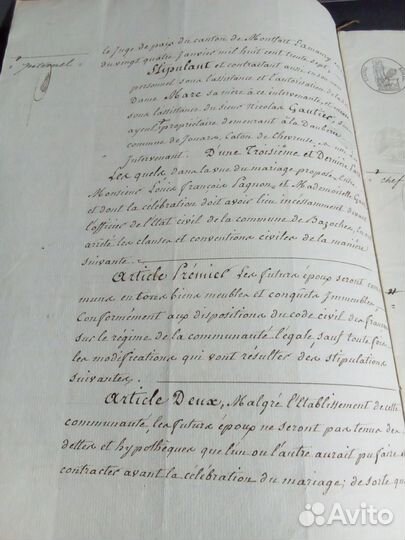 le Juge de paix du canton de Montfort Lamaury
du vingt quatre Janvier mil huit cent trente sept
Stipulant et contractant aussi en son
personnel
personnel sous l'assistance et l'autorisation de la
Dame Marc sa mère à ce intervenante, et
sous l'assistance du Sieur Nicolas Gautier,
ayent propriétaire demeurant à la Dauberie
commune de Jouars, Caton de Chevreuse,
Intervenant. D'une Troisième et Dernière
Les quels, dans la vue du mariage proposé
Monsieur Louis François Pagnon, et Mademoiselle
et dont la célébration doit avoir lieu incessamment devant
l'officier de l'Etat civil de la commune de Bazoches,
arrêté les clauses et conventions civiles de la manière
suivante.
Article Prémier Les futurs époux seront com
muns en tous biens meubles et conquêts Immeubles,
Conformément aux dispositions du code civil des français
sur le régime de la communauté légale, sauf toutefois
les modifications qui vont résulter des stipulations
suivantes.
Article Deux, Malgré l'Etablissement de cette
communauté, les futurs époux ne seront pas tenus des
dettes et hypothèques que l'un ou l'autre aurait pu faire et
contractés avant la célébration du mariage; de sorte que
chef
Avito